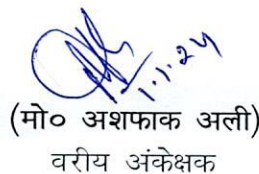 1.1.24
(मो० अशफाक अली)
वरीय अंकेक्षक